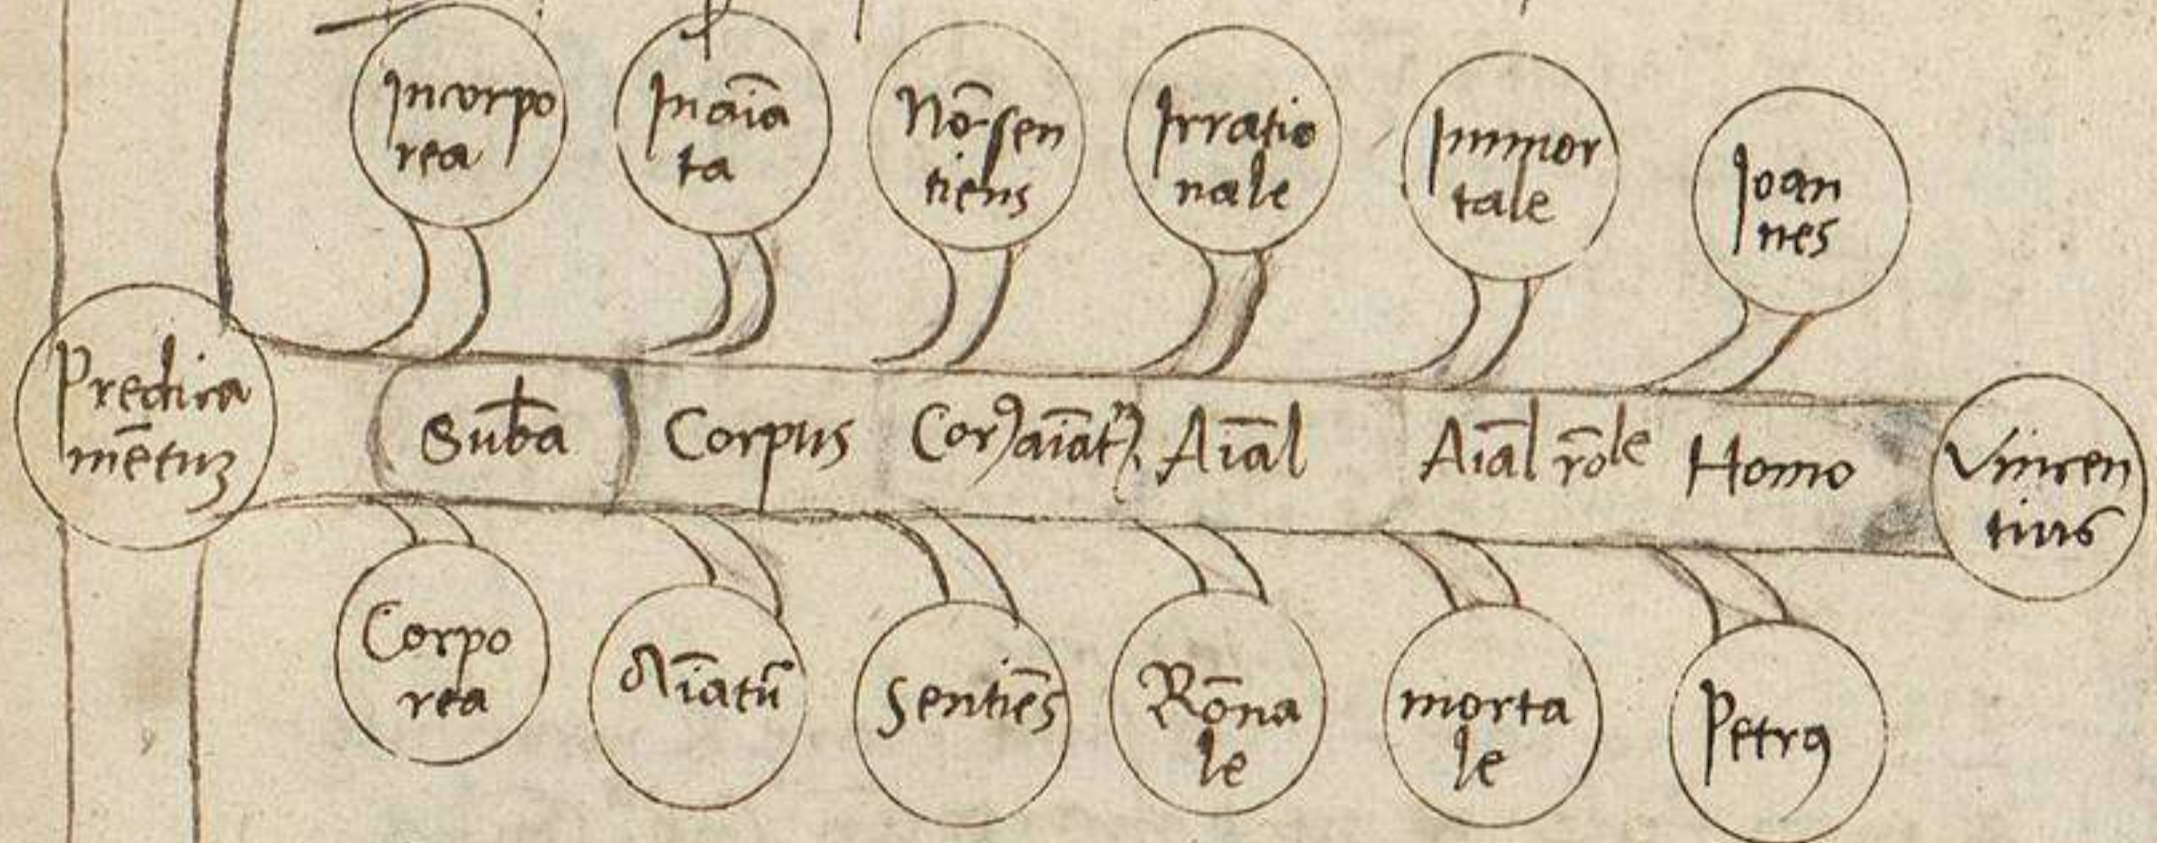 Incorpo
rea
Inaīa
ta
Nō sen
tiens
Irratio
nale
Immor
tale
Joan
nes
Predica
mētuȝ
Sub̄a
Corpus
Corꝰ aīatū
Aīal
Aīal rōle
Homo
Vincen
tius
Corpo
rea
Aīatū
Sentiēs
Rōna
le
morta
le
Petrꝰ